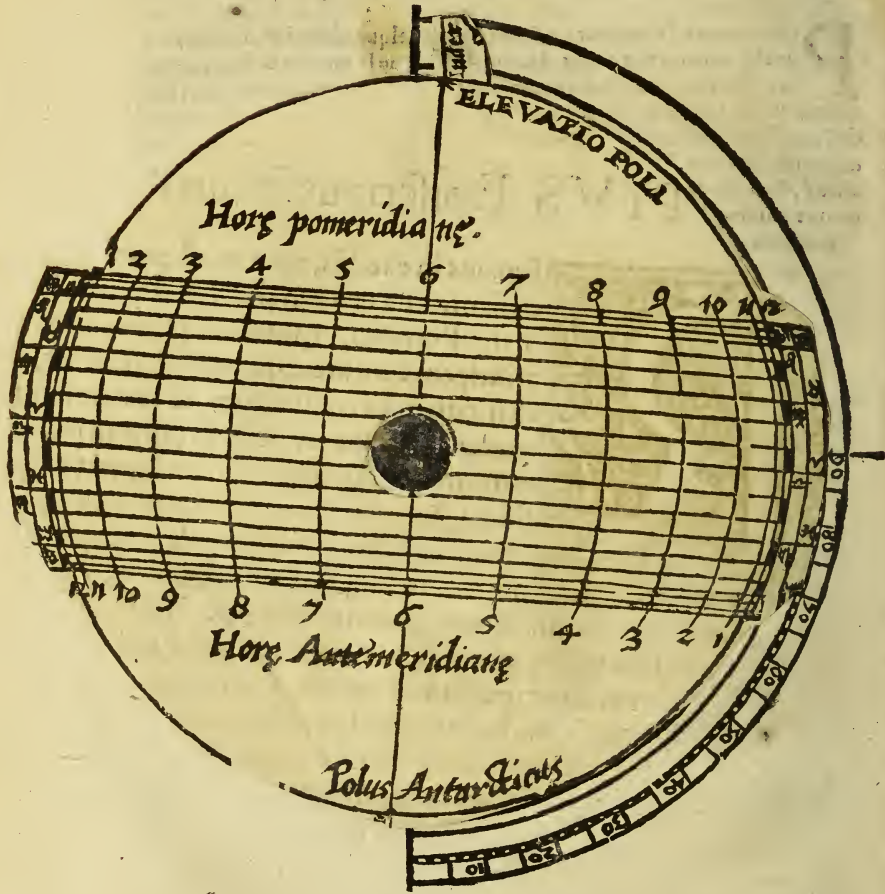 Index
ELEVATIO POLI
Horę pomeridianę.
1 2 3 4 5 6 7 8 9 10 11 12
12 11 10 9 8 7 6 5 4 3 2 1
Horę Antemeridianę
Polus Antarcticus
90
80
70
60
50
40
30
20
10